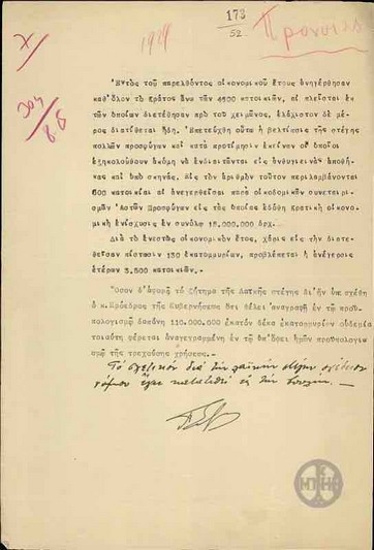 173
52
1929
Προνοια
Ἐντός τοῦ παρελθόντος οἰκονομικοῦ ἔτους ἀνηγέρθησαν
καθ'ὅλον τό Κράτος ἄνω τῶν 4500 κατοικιῶν, αἱ πλεῖσται ἐκ
τῶν ὁποίων διετέθησαν πρό τοῦ χειμῶνος, ἐλάχιστον δέ μέρος
διατίθεται ἤδη. Ἐπετεύχθη οὕτω ἡ βελτίωσις τῆς στέγης
πολλῶν προσφύγων καί κατά προτίμησιν ἐκείνων οἱ ὁποῖοι
ἐξηκολούθουν ἀκόμη νά ἐνδιαιτῶνται εἰς ἀνθυγιεινάς ἀποθή-
κας καί ὑπό σκηνάς. Εἰς τόν ἀριθμόν τοῦτον περιλαμβάνονται
600 κατοικίαι αἱ ἀνεγερθεῖσαι παρά οἰκοδομικῶν συνεταιρι-
σμῶν Ἀστῶν Προσφύγων εἰς τούς ὁποίους ἐδόθη κρατική οἰκονο-
μική ἐνίσχυσις ἐν συνόλῳ 18.000.000 δρχ.
Διά τό ἐνεστώς οἰκονομικόν ἔτος, χάρις εἰς τήν διατε-
θεῖσαν πίστωσιν 150 ἑκατομμυρίων, προβλέπεται ἡ ἀνέγερσις
ἑτέρων 3.500 κατοικιῶν.-
Ὅσον ἀφορᾷ τό ζήτημα τῆς Λαϊκῆς στέγης δι'ἥν ὑπεσχέθη
ὁ κ.Πρόεδρος τῆς Κυβερνήσεως ὅτι θέλει ἀναγραφῆ ἐν τῷ προϋ-
πολογισμῷ δαπάνη 110.000.000 ἑκατόν δέκα ἑκατομμυρίων οὐδεμία
τοιαύτη φέρεται ἀναγεγραμμένη ἐν τῷ ὑπ'ὄψει ἡμῶν προϋπολογι-
σμῷ τῆς τρεχούσης χρήσεως.
Τό σχετικόν διά τήν λαϊκήν στέγην σχέδιον
νόμου ἔχει κατατεθῇ εἰς τήν Βουλήν.